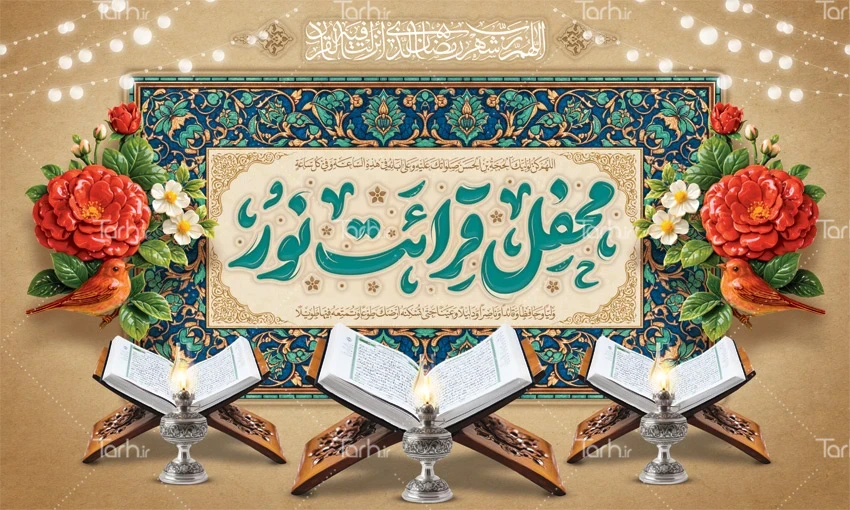 اللهم رب شهر رمضان الذی انزلت فیه القرآن
اللهم کن لولیک الحجة بن الحسن صلواتک علیه و علی آبائه فی هذه الساعة و فی کل ساعة
محفل قرائت نور
ولیا و حافظا و قائدا و ناصرا و دلیلا و عینا حتی تسکنه ارضک طوعا و تمتعه فیها طویلا
Tarh.ir